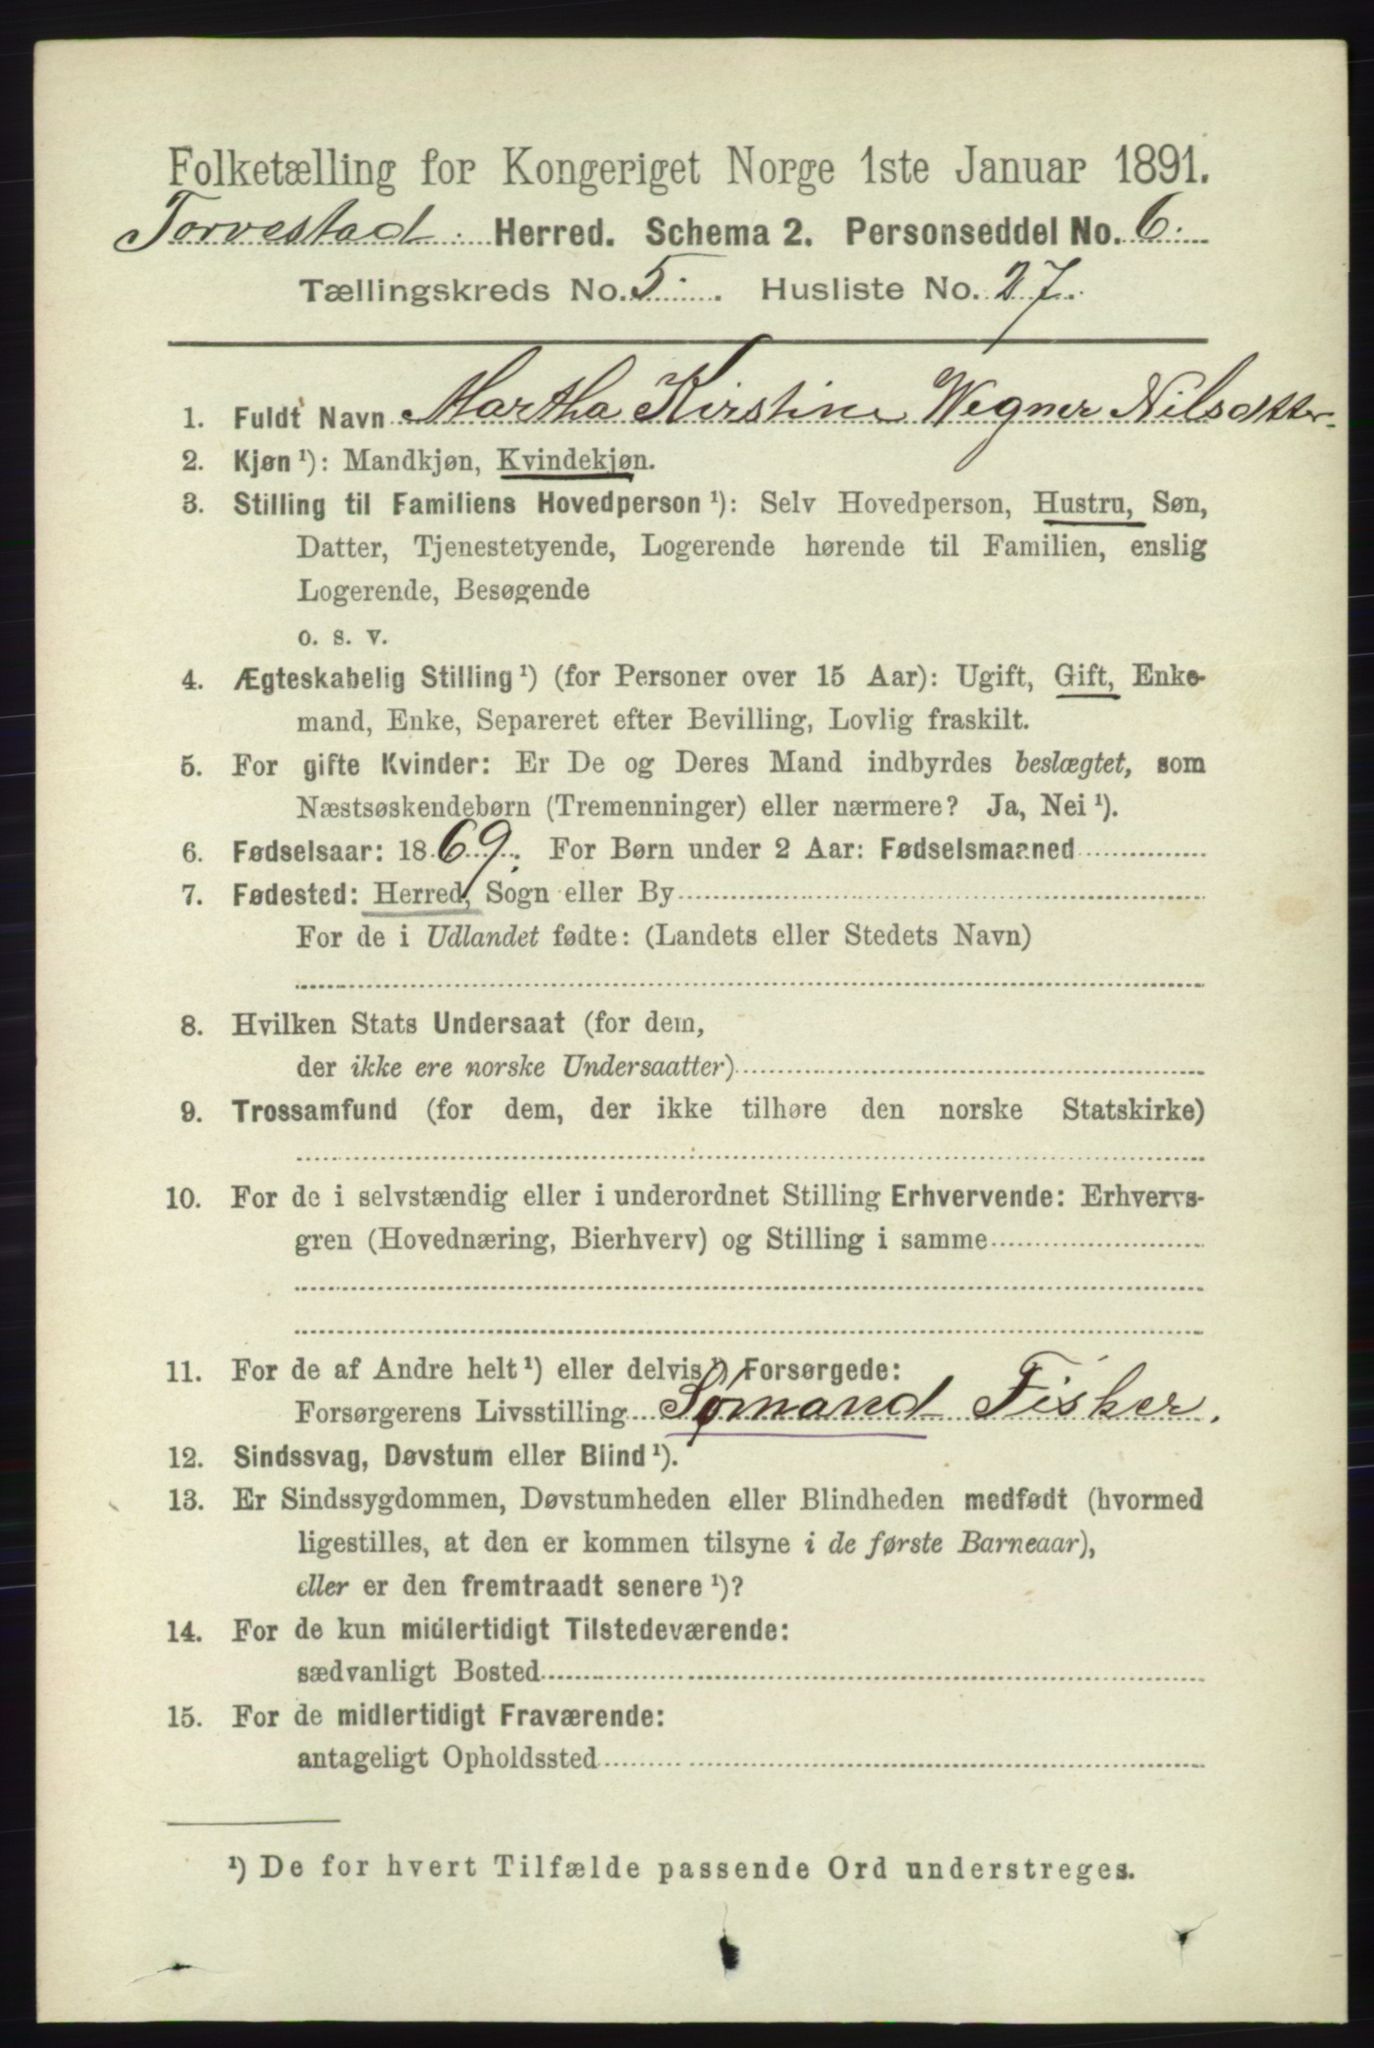 Folketælling for Kongeriget Norge 1ste Januar 1891.
Torvestad Herred. Schema 2. Personseddel No. 6.
Tællingskreds No. 5. Husliste No. 27.
1. Fuldt Navn Martha Kirstine Wegner Nilsdtter
2. Kjøn ¹): Mandkjøn, Kvindekjøn.
3. Stilling til Familiens Hovedperson ¹): Selv Hovedperson, Hustru, Søn,
Datter, Tjenestetyende, Logerende hørende til Familien, enslig
Logerende, Besøgende
o. s. v.
4. Ægteskabelig Stilling ¹) (for Personer over 15 Aar): Ugift, Gift, Enke-
mand, Enke, Separeret efter Bevilling, Lovlig fraskilt.
5. For gifte Kvinder: Er De og Deres Mand indbyrdes beslægtet, som
Næstsøskendebørn (Tremenninger) eller nærmere? Ja, Nei ¹).
6. Fødselsaar: 1869. For Børn under 2 Aar: Fødselsmaaned
7. Fødested: Herred, Sogn eller By
For de i Udlandet fødte: (Landets eller Stedets Navn)
8. Hvilken Stats Undersaat (for dem,
der ikke ere norske Undersaatter)
9. Trossamfund (for dem, der ikke tilhøre den norske Statskirke)
10. For de i selvstændig eller i underordnet Stilling Erhvervende: Erhvervs-
gren (Hovednæring, Bierhverv) og Stilling i samme
11. For de af Andre helt ¹) eller delvis ¹) Forsørgede:
Forsørgerens Livsstilling Sømand Fisker.
12. Sindssvag, Døvstum eller Blind ¹).
13. Er Sindssygdommen, Døvstumheden eller Blindheden medfødt (hvormed
ligestilles, at den er kommen tilsyne i de første Barneaar),
eller er den fremtraadt senere ¹)?
14. For de kun midlertidigt Tilstedeværende:
sædvanligt Bosted
15. For de midlertidigt Fraværende:
antageligt Opholdssted
¹) De for hvert Tilfælde passende Ord understreges.